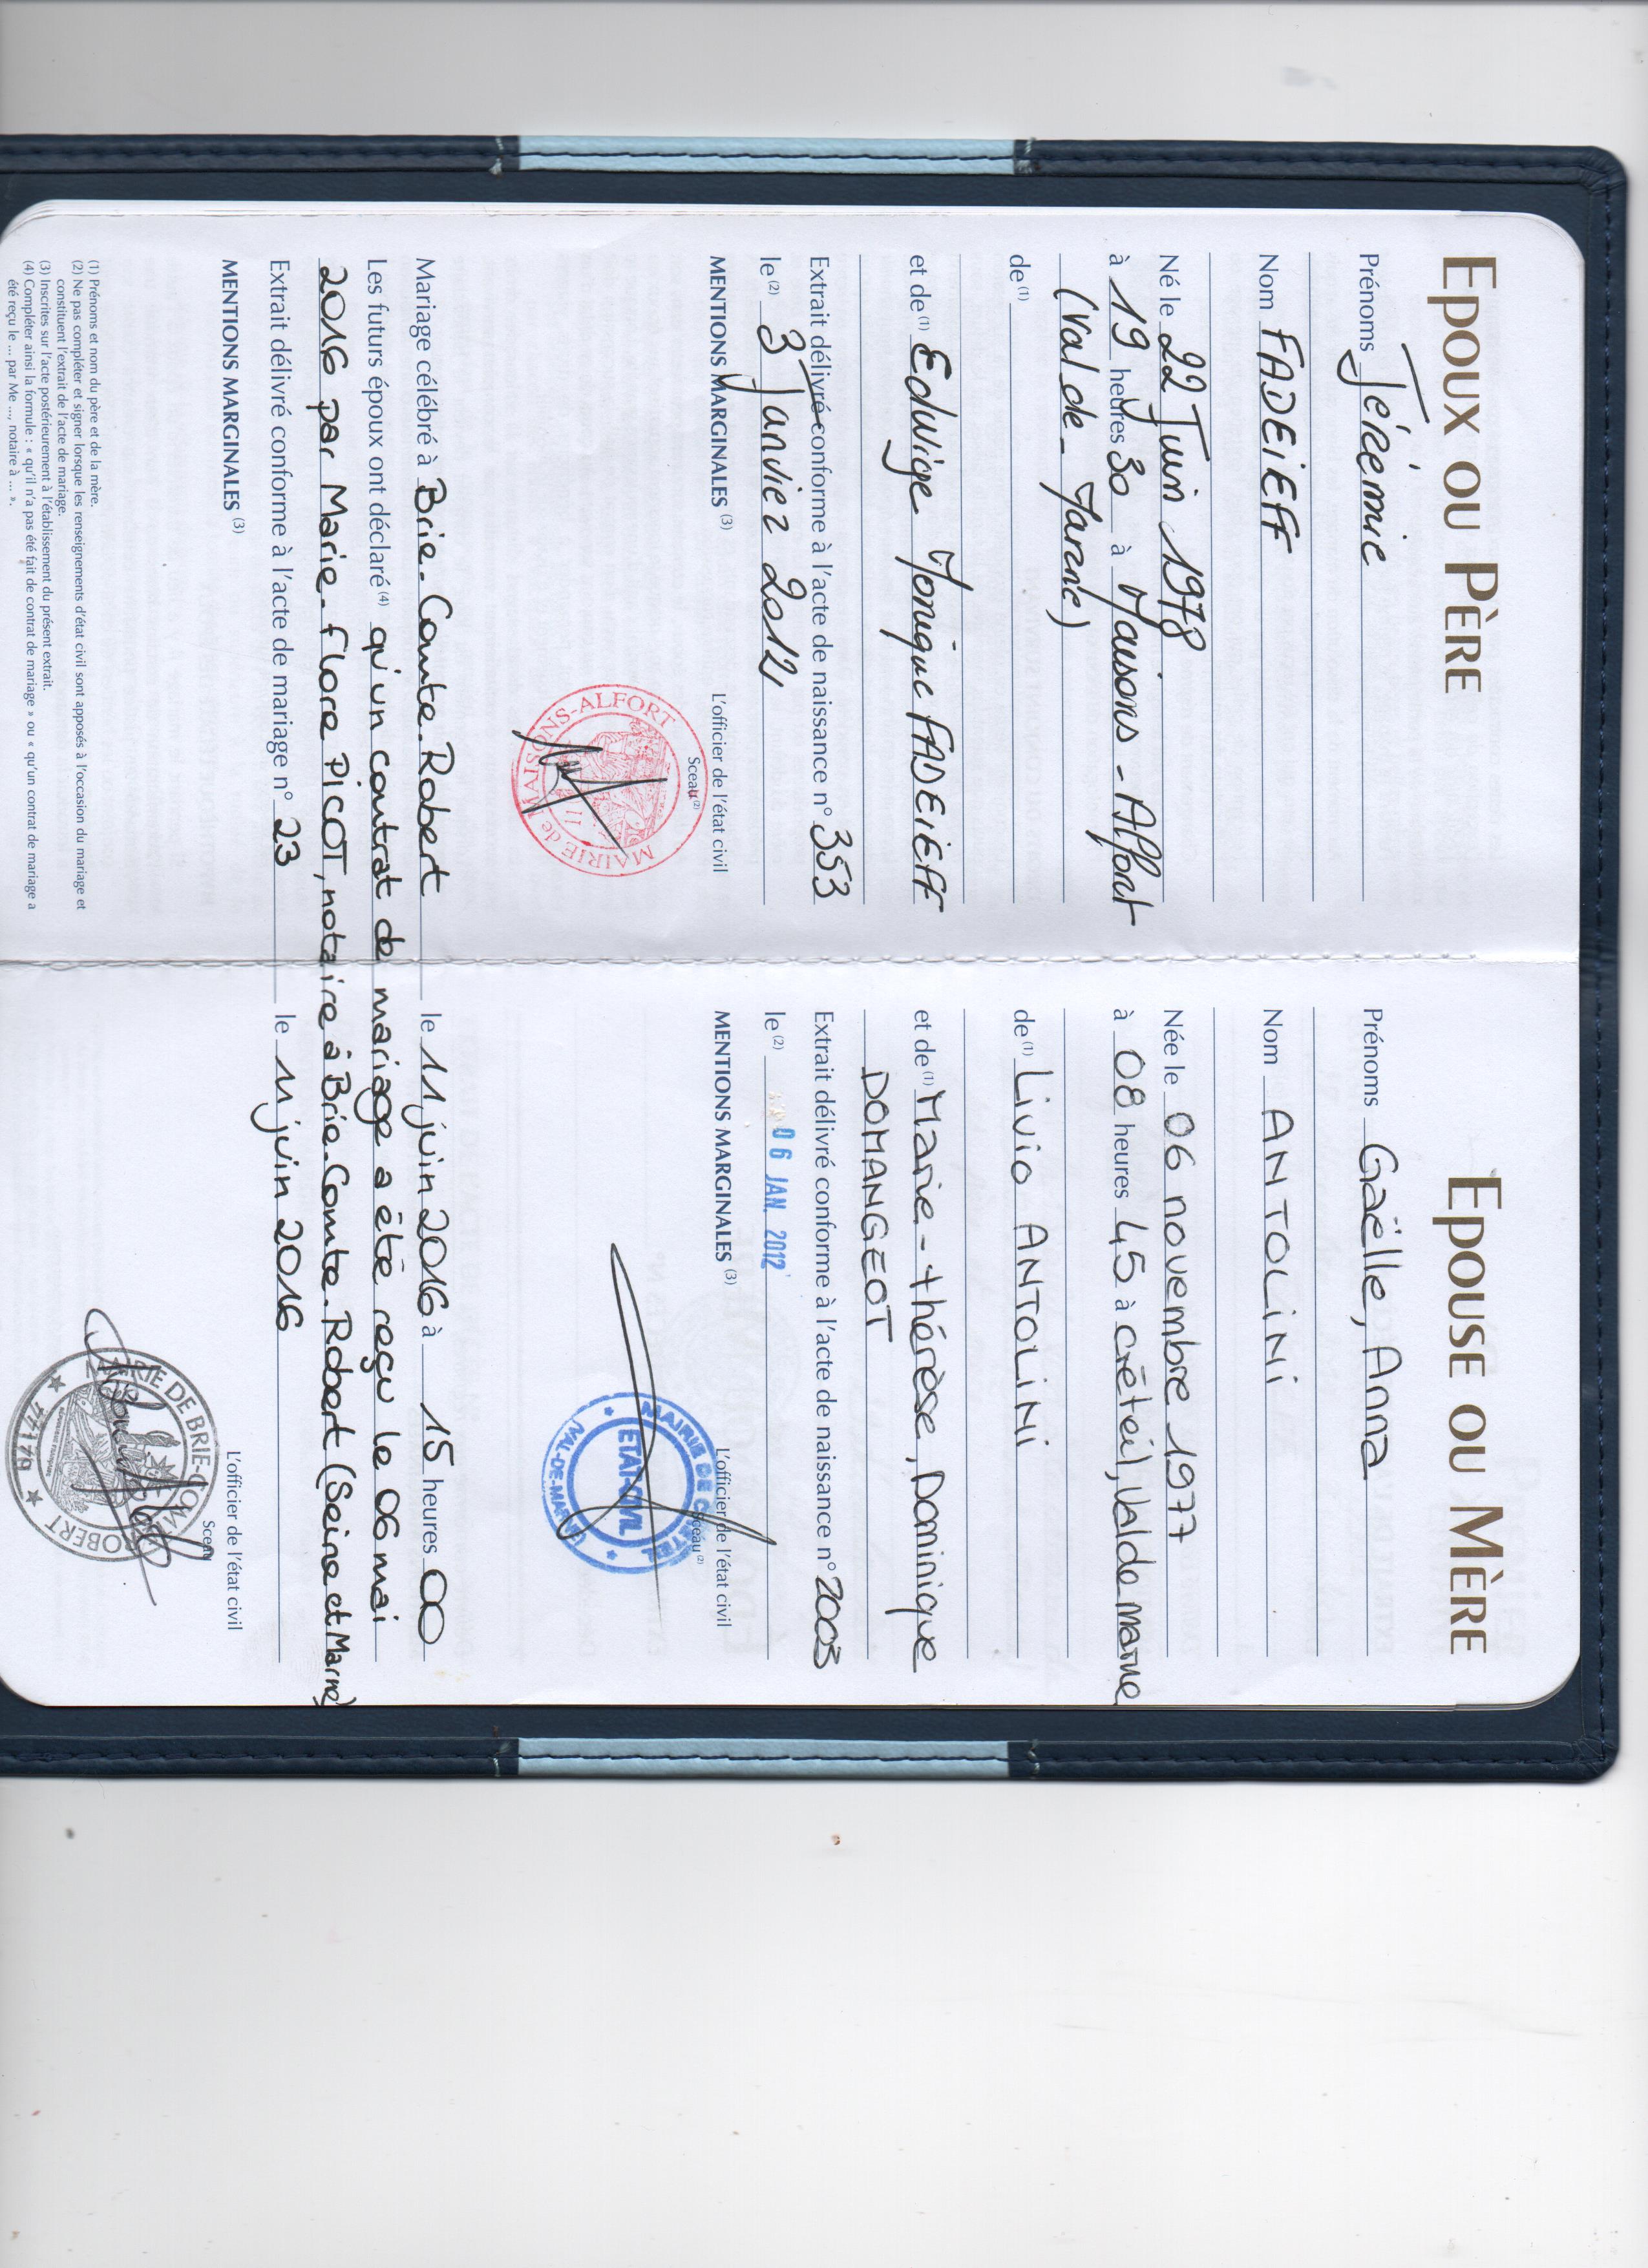 EPOUX OU PÈRE
Prénoms Jérémie
Nom FADEiEFF
Né le 22 Juin 1978
à 19 heures 30 à Maisons - Alfort
(Val de Marne)
de (1)
et de (1) Edwige Monique FADEiEFF
Extrait délivré conforme à l'acte de naissance n° 353
le (2) 3 Janvier 2012
MENTIONS MARGINALES (3)
L'officier de l'état civil
Sceau (2)
MAIRIE de MAISONS-ALFORT
EPOUSE OU MÈRE
Prénoms Gaëlle, Anna
Nom ANTOLiNi
Née le 06 novembre 1977
à 08 heures 45 à Créteil, Val de Marne
de (1) Livio ANTOLiNi
et de (1) Marie-thérèse, Dominique
DOMANGEOT
Extrait délivré conforme à l'acte de naissance n° 2003
le (2) 06 JAN. 2012
MENTIONS MARGINALES (3)
L'officier de l'état civil
Sceau (2)
MAIRIE DE CRETEIL
ETAT-CIVIL
(VAL-DE-MARNE)
Mariage célébré à Brie-Comte-Robert le 11 juin 2016 à 15 heures 00
Les futurs époux ont déclaré (4) qu'un contrat de mariage a été reçu le 06 mai
2016 par Marie-Flore PICOT, notaire à Brie-Comte-Robert (Seine et Marne)
Extrait délivré conforme à l'acte de mariage n° 23 le 11 juin 2016
MENTIONS MARGINALES (3)
L'officier de l'état civil
Sceau
MAIRIE DE BRIE-COMTE ROBERT
77170
(1) Prénoms et nom du père et de la mère.
(2) Ne pas compléter et signer lorsque les renseignements d'état civil sont apposés à l'occasion du mariage et
constituent l'extrait de l'acte de mariage.
(3) Inscrites sur l'acte postérieurement à l'établissement du présent extrait.
(4) Compléter ainsi la formule : « qu'il n'a pas été fait de contrat de mariage » ou « qu'un contrat de mariage a
été reçu le ... par Me ..., notaire à ... ».